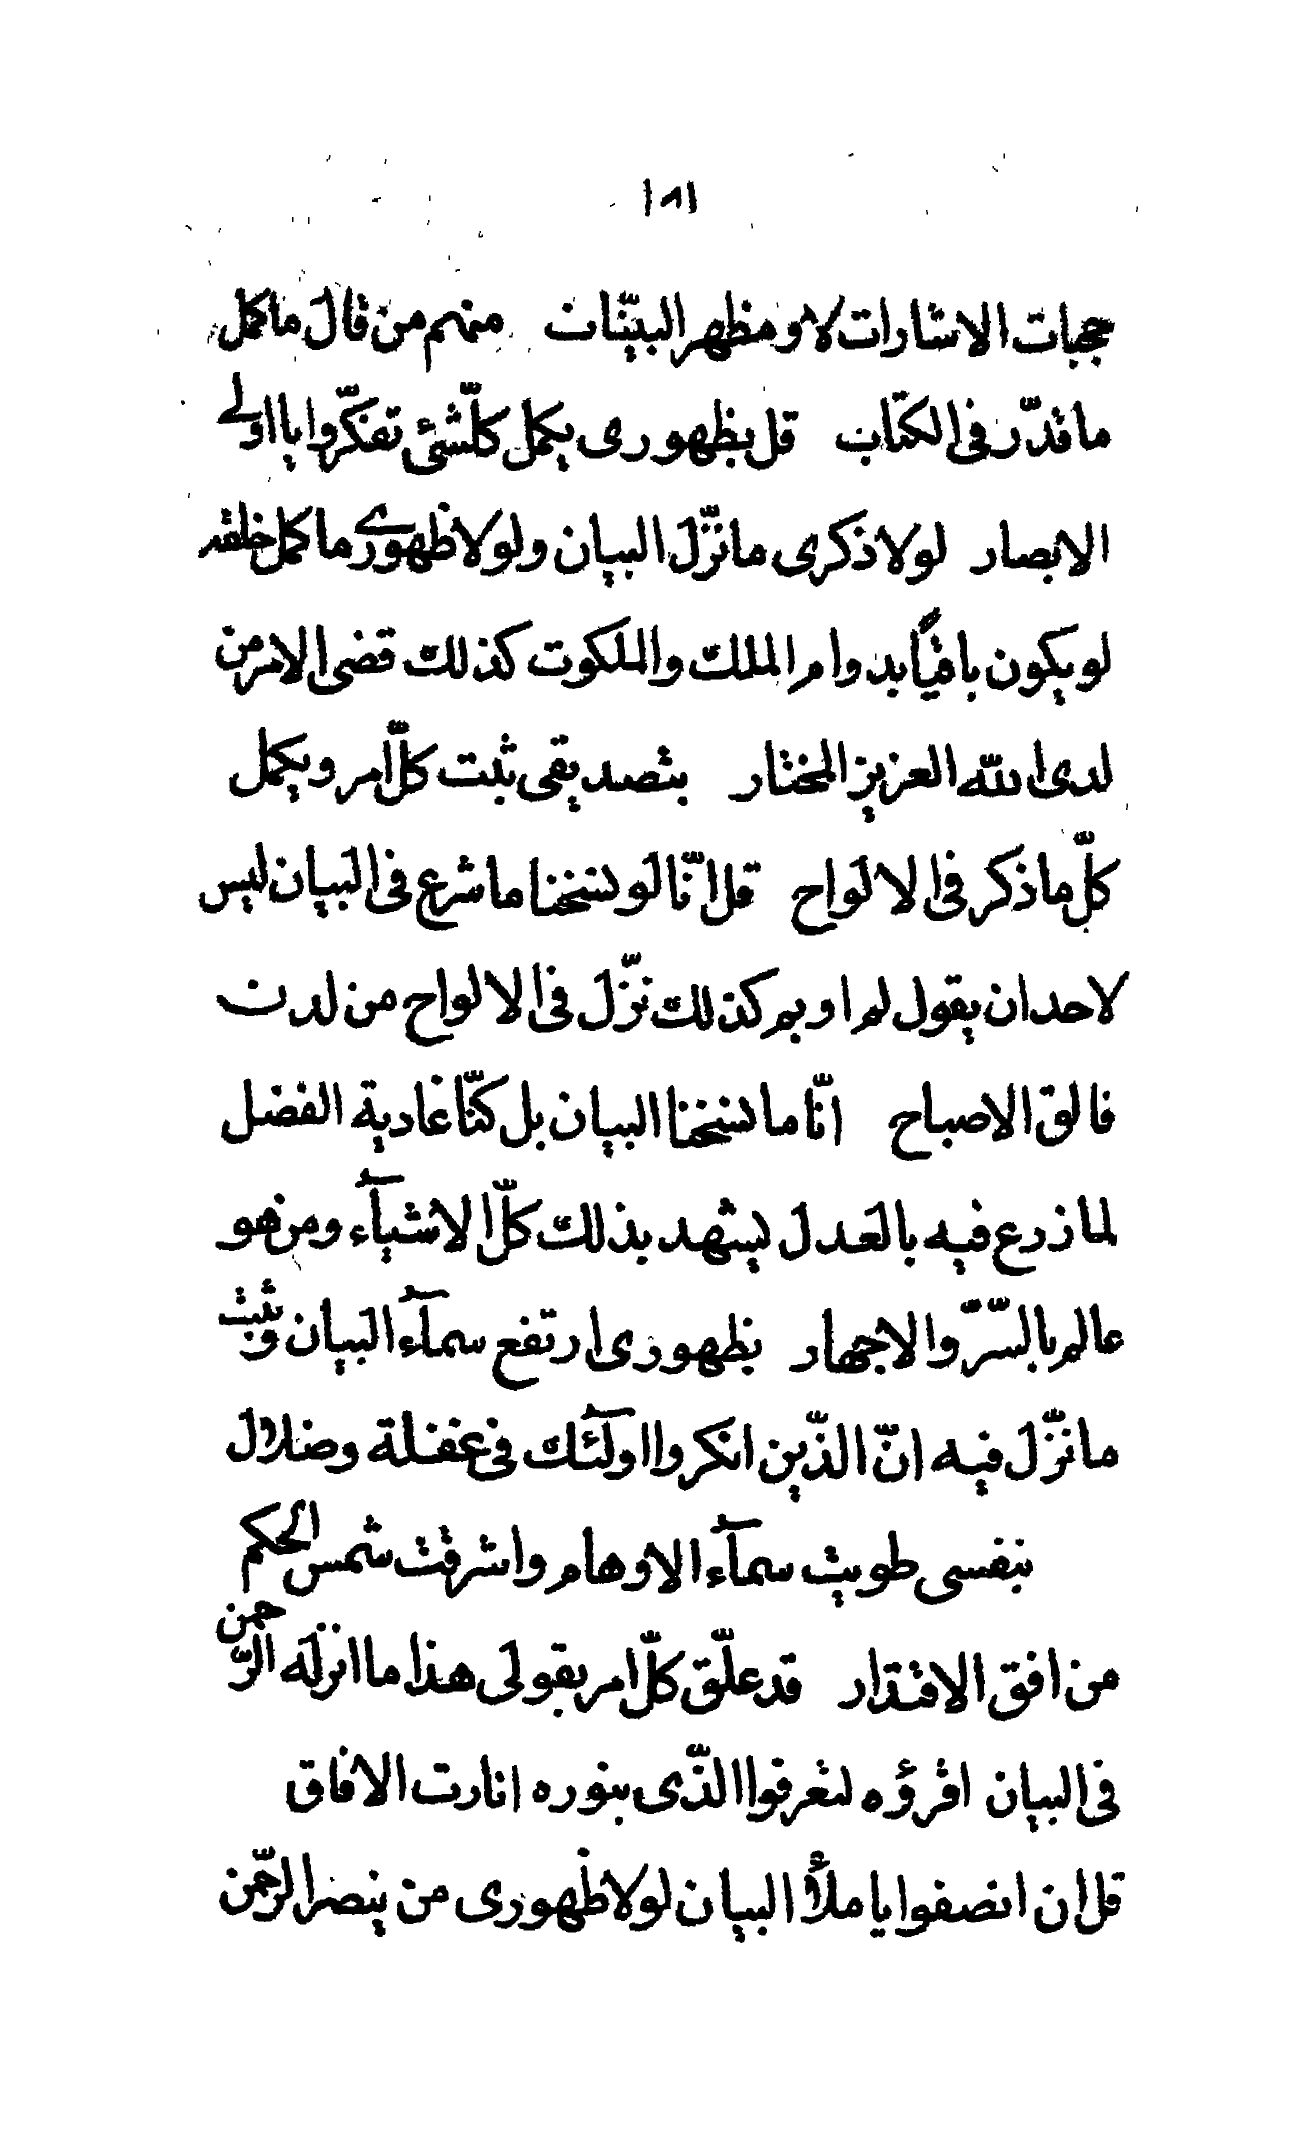 ١٨١
حجبات الاشارات لا و مظهر البيّنات منهم من قال ما كمل
ما قدّر فى الكتاب قل بظهورى يكمل كلّشئ تفكّروا يا اولى
الابصار لولا ذكرى ما نزّل البيان ولولا ظهورى ما كمل خلقه
لو يكون باقياً بدوام الملك والملكوت كذلك قضى الامر من
لدى الله العزيز المختار بتصديقى ثبت كلّ امر ويكمل
كلّ ما ذكر فى الالواح قل انّا لو نسخنا ما شرع فى البيان ليس
لاحد ان يقول لم او بم كذلك نزّل فى الالواح من لدن
فالق الاصباح انّا ما نسخنا البيان بل كنّا غادية الفضل
لما زرع فيه بالعدل يشهد بذلك كلّ الاشيآء ومن هو
عالم بالسرّ والاجهار بظهورى ارتفع سمآء البيان وثبت
ما نزّل فيه انّ الذّين انكروا اولٓئك فى غفلة وضلال
بنفسى طويت سمآء الاوهام واشرقت شمس الحكم
من افق الاقتدار قد علّق كلّ امر بقولى هذا ما انزله الرّحمن
فى البيان اقرؤه لتعرفوا الذّى بنوره انارت الافاق
قل ان انصفوا يا ملأ البيان لولا ظهورى من ينصر الرّحمن